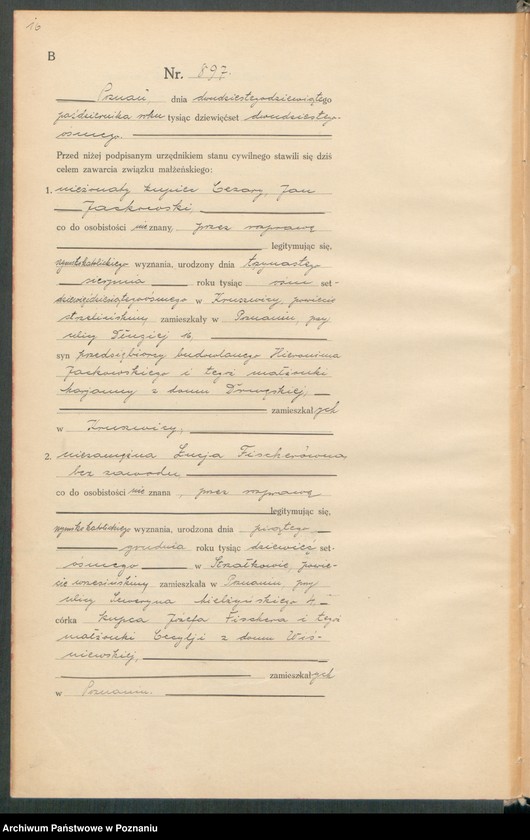 16
B
Nr. 897.
Poznań, dnia dwudziestegodziewiątego
października roku tysiąc dziewięćset dwudziestego
ósmego.
Przed niżej podpisanym urzędnikiem stanu cywilnego stawili się dziś
celem zawarcia związku małżeńskiego:
1. nieżonaty kupiec Cezary, Jan
Jaskowski,
co do osobistości nie znany, przez rozprawę
legitymując się,
rzymskokatolickiego wyznania, urodzony dnia trzynastego
sierpnia roku tysiąc ośm set-
dziewięćdziesiątegoósmego w Kruszwicy, powiecie
strzelińskim, zamieszkały w Poznaniu, przy
ulicy Długiej
syn przedsiębiorcy budowlanego Hieronima
Jaskowskiego i tegoż małżonki
Marjanny z domu
zamieszkałych
w Kruszwicy,
2. niezamężna Łucja Fischerówna,
bez zawodu
co do osobistości nie znana, przez rozprawę
legitymując się,
rzymskokatolickiego wyznania, urodzona dnia piątego
grudnia roku tysiąc dziewięć set-
ósmego w Strzałkowie, powie-
cie wrzesińskim, zamieszkała w Poznaniu, przy
ulicy Seweryna Mielżyńskiego 4,
córka kupca Józefa Fischera i tegoż
małżonki Cecylji z domu Wiś-
niewskiej,
zamieszkałych
w Poznaniu.
Archiwum Państwowe w Poznaniu